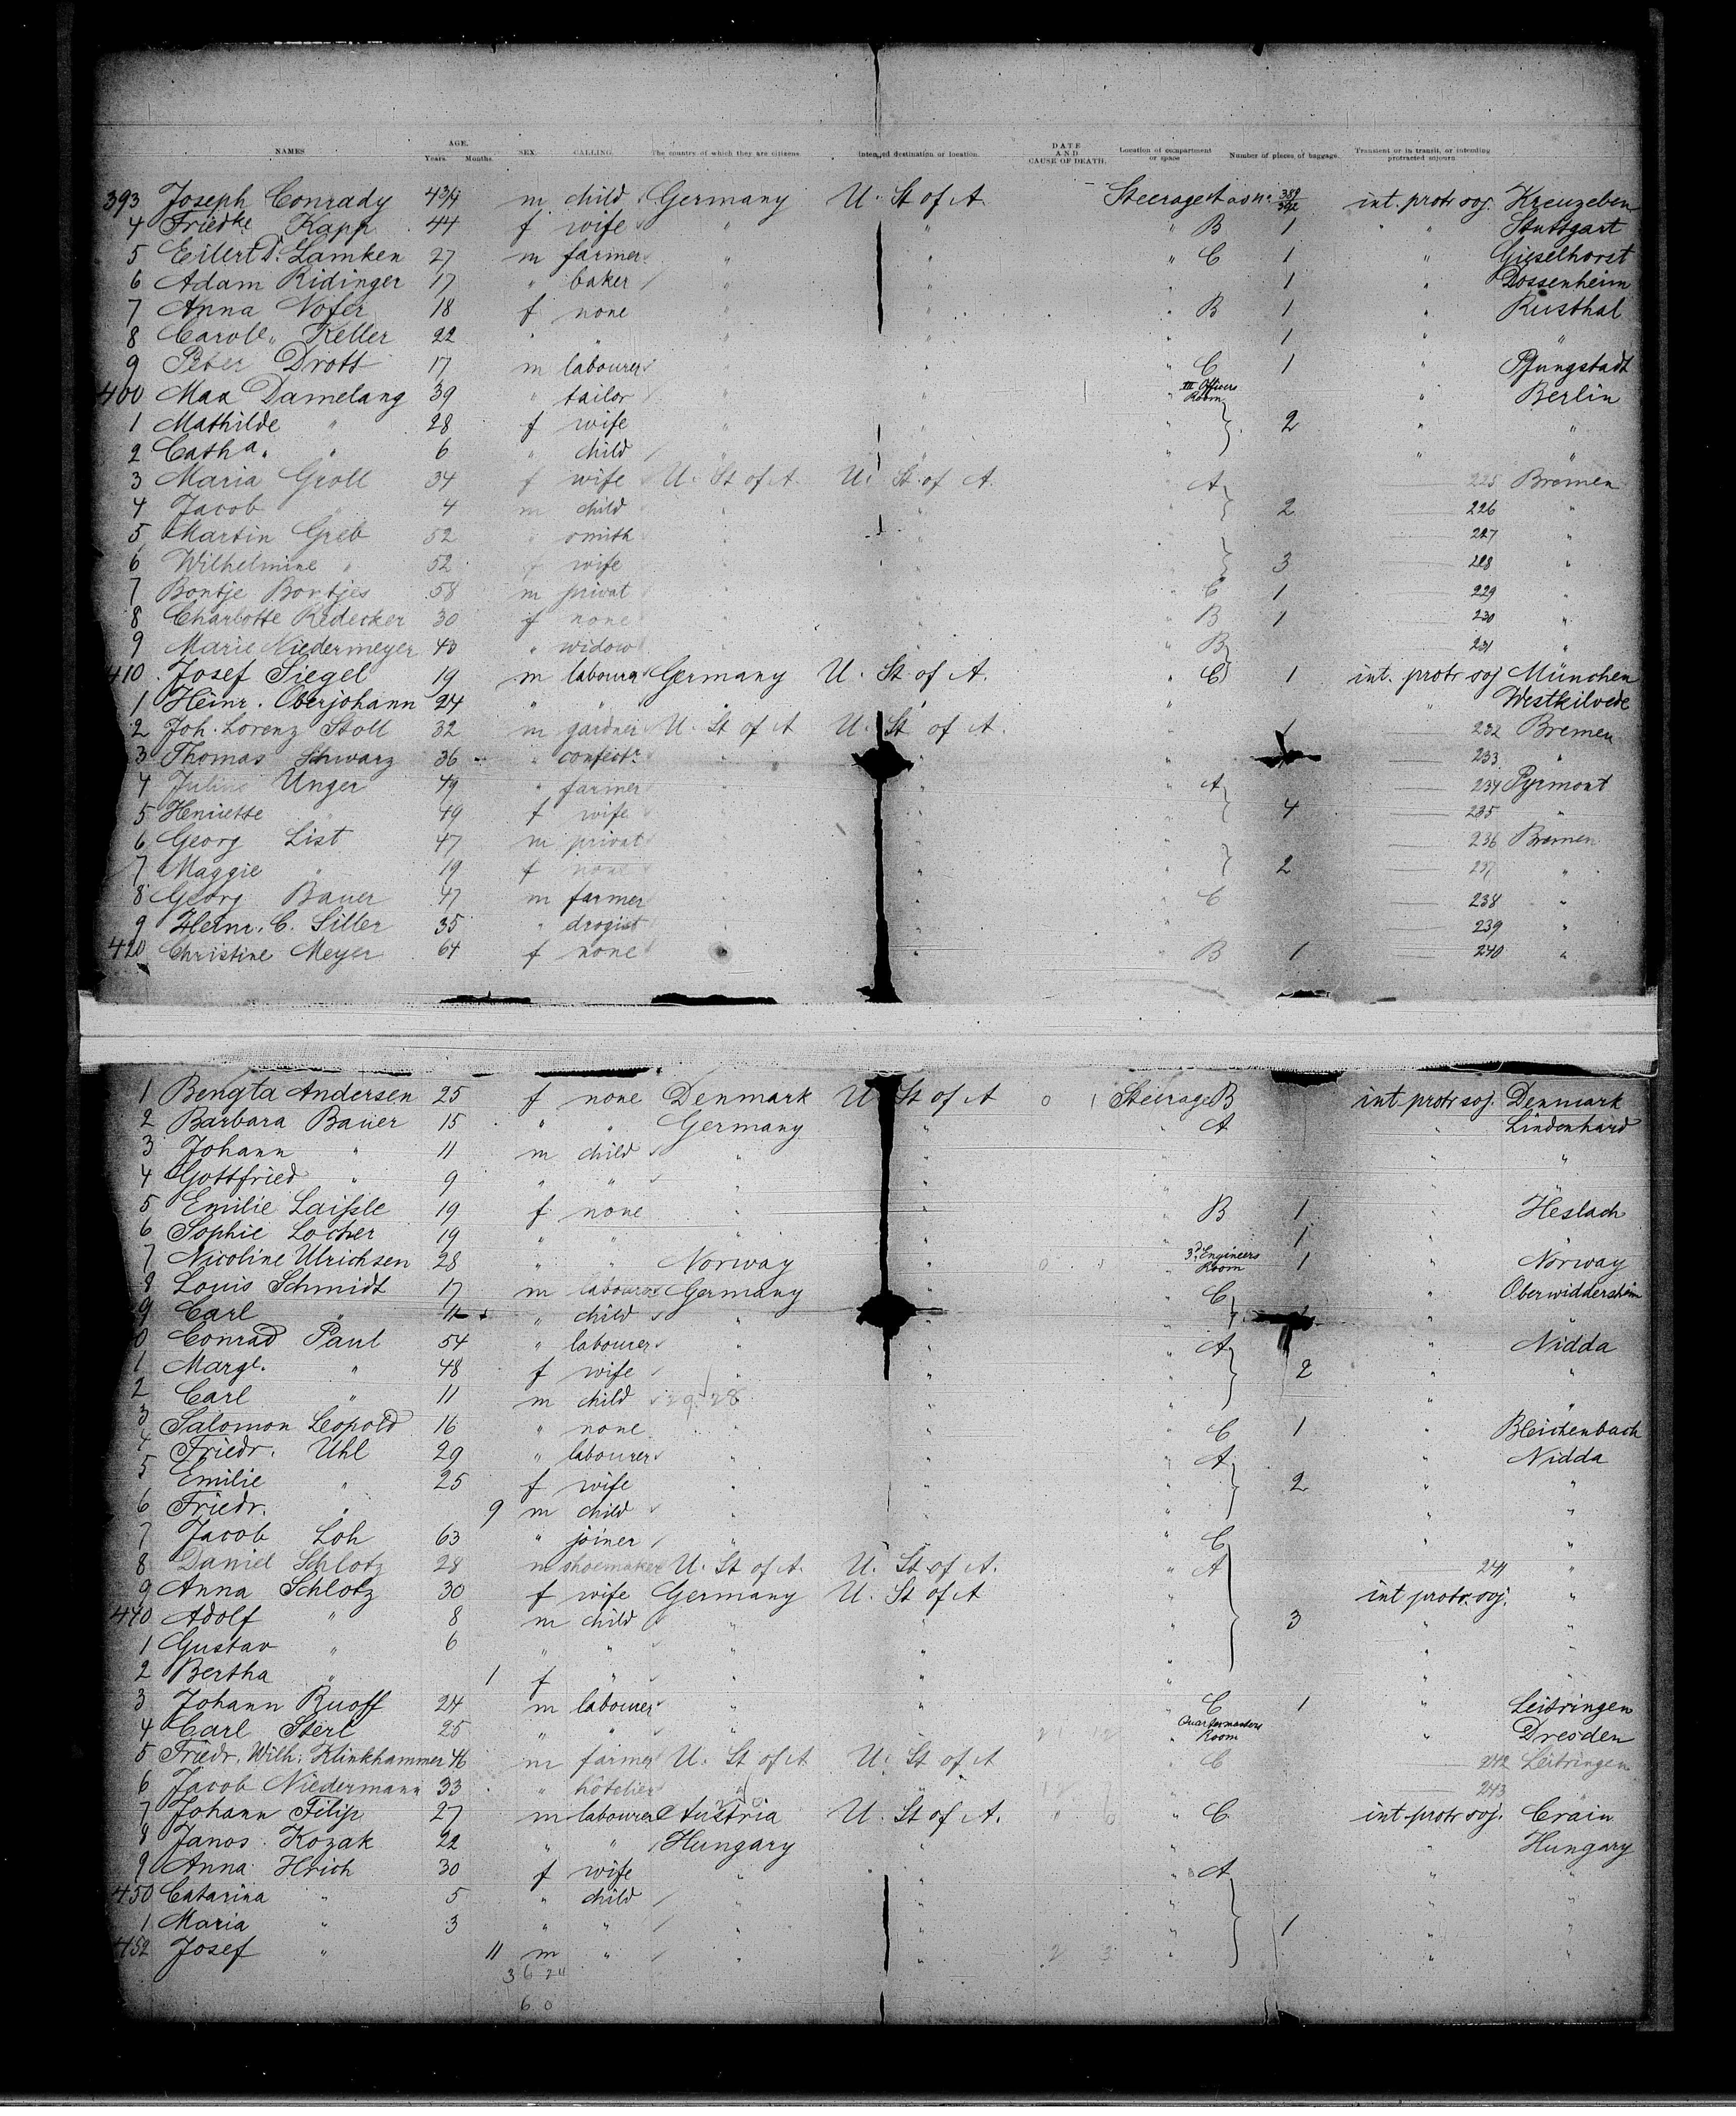 NAMES AGE. Years. Months. SEX. CALLING. The country of which they are citizens. Intended destination or location. DATE AND CAUSE OF DEATH. Location of compartment or space Number of pieces of baggage. Transient or in transit, or intending protracted sojourn.
393 Joseph Conrady m child Germany U. St of A. Steerage int. protr soj. Kreuzeben
4 Friedke Kapp 44 f wife " " " B 1 " " Stuttgart
5 Eilert D. Lamken 27 m farmer " " " C 1 " Gieselhorst
6 Adam Ridinger 17 " baker " " " 1 " Dossenheim
7 Anna Nofer 18 f none " " " B 1 " Rusthal
8 Carole. Keller 22 " " " " 1 " "
9 Peter Drott 17 m labourer " " " C 1 " Pfungstadt
400 Max Damelang 39 " tailor " " " III Officers Room " Berlin
1 Mathilde " 28 f wife " " " 2 " "
2 Catha. " 6 " child " " " " "
3 Maria Groll 34 f wife U. St of A. U. St. of A. " A 225 Bremen
4 Jacob " 4 m child " " " 2 226 "
5 Martin Greb 52 " smith " " " 227 "
6 Wilhelmine " 52 f wife " " " 3 228 "
7 Bontje Bontjes 58 m privat " " " C 1 229 "
8 Charlotte Redecker 30 f none " " " B 1 230 "
9 Marie Niedermeyer 40 " widow " " " B 231 "
410 Josef Siegel 19 m labourer Germany U. St of A. " C 1 int. protr soj München
1 Heinr. Oberjohann 24 " " " " " " Westkilvede
2 Joh. Lorenz Stoll 32 m gardner U. St of A U. St of A. 1 232 Bremen
3 Thomas Schwarz 36 " confectr. " " 233 "
4 Julius Unger 49 " farmer " " " A 234 Pyrmont
5 Henriette " 49 f wife " " " 4 235 "
6 Georg List 47 m privat " " " 236 Bremen
7 Maggie " 19 f none " " " 2 237 "
8 Georg Bauer 47 m farmer " " " C 238 "
9 Heinr. C. Siller 35 " drogist " " " 239 "
420 Christine Meyer 64 f none " " " B 1 240 "
1 Bengta Andersen 25 f none Denmark U. St of A 0 1 Steerage B int. protr soj. Denmark
2 Barbara Bauer 15 " " Germany " " A " Lindenhard
3 Johann " 11 m child " " " " "
4 Gottfried " 9 " " " " " "
5 Emilie Laißle 19 f none " " " B 1 " Heslach
6 Sophie Locher 19 " " " " " 1 " "
7 Nicoline Ulrichsen 28 " " Norway " 3d. Engineers Room 1 " Norway
8 Louis Schmidt 17 m labourer Germany " " C " Oberwiddersheim
9 Carl " 11 " child " " " " "
0 Conrad Paul 54 " labourer " " " A " Nidda
1 Margt. " 48 f wife " " " 2 " "
2 Carl " 11 m child 29 28 " " " " "
3 Salomon Leopold 16 " none " " " C 1 " Bleichenbach
4 Friedr. Uhl 29 " labourer " " " A " Nidda
5 Emilie " 25 f wife " " " 2 " "
6 Friedr. " 9 m child " " " " "
7 Jacob Loh 63 " joiner " " " C " "
8 Daniel Schlotz 28 m shoemaker U. St of A. U. St of A. " A 241 "
9 Anna Schlotz 30 f wife Germany U. St of A " int protr. soj. "
440 Adolf " 8 m child " " " 3 " "
1 Gustav " 6 " " " " " " "
2 Bertha " 1 f " " " " " "
3 Johann Ruoff 24 m labourer " " " C 1 " Leitringen
4 Carl Sterl 25 " " " " " Quartermasters Room " Dresden
5 Friedr. Wilh. Klinkhammer 46 m farmer U. St of A U. St of A " C 242 Leitringen
6 Jacob Niedermann 33 " hôtelier " " " 243
7 Johann Filip 27 m labourer Austria U. St of A. " C int. protr soj. Crain
8 Janos Kozak 22 " " Hungary " " " Hungary
9 Anna Hrich 30 f wife " " " A " "
450 Catarina " 5 " child " " " " "
1 Maria " 3 " " " " " 1 " "
452 Josef " 11 m " " " 2 3 " " "
3 6 24
6 0